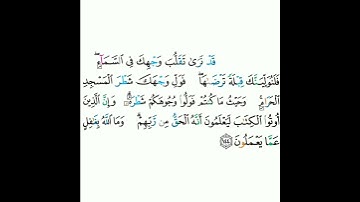 قَدْ نَرَىٰ تَقَلُّبَ وَجْهِكَ فِي السَّمَآءِۖ
فَلَنُوَلِّيَنَّكَ قِبْلَةً تَرْضَىٰهَاۚ فَوَلِّ وَجْهَكَ شَطْرَ الْمَسْجِدِ
الْحَرَامِۚ وَحَيْثُ مَا كُنْتُمْ فَوَلُّوا۟ وُجُوهَكُمْ شَطْرَهُۥۗ وَإِنَّ الَّذِينَ
أُوتُوا۟ الْكِتَٰبَ لَيَعْلَمُونَ أَنَّهُ الْحَقُّ مِن رَّبِّهِمْۗ وَمَا اللَّهُ بِغَٰفِلٍ
عَمَّا يَعْمَلُونَ ١٤٤